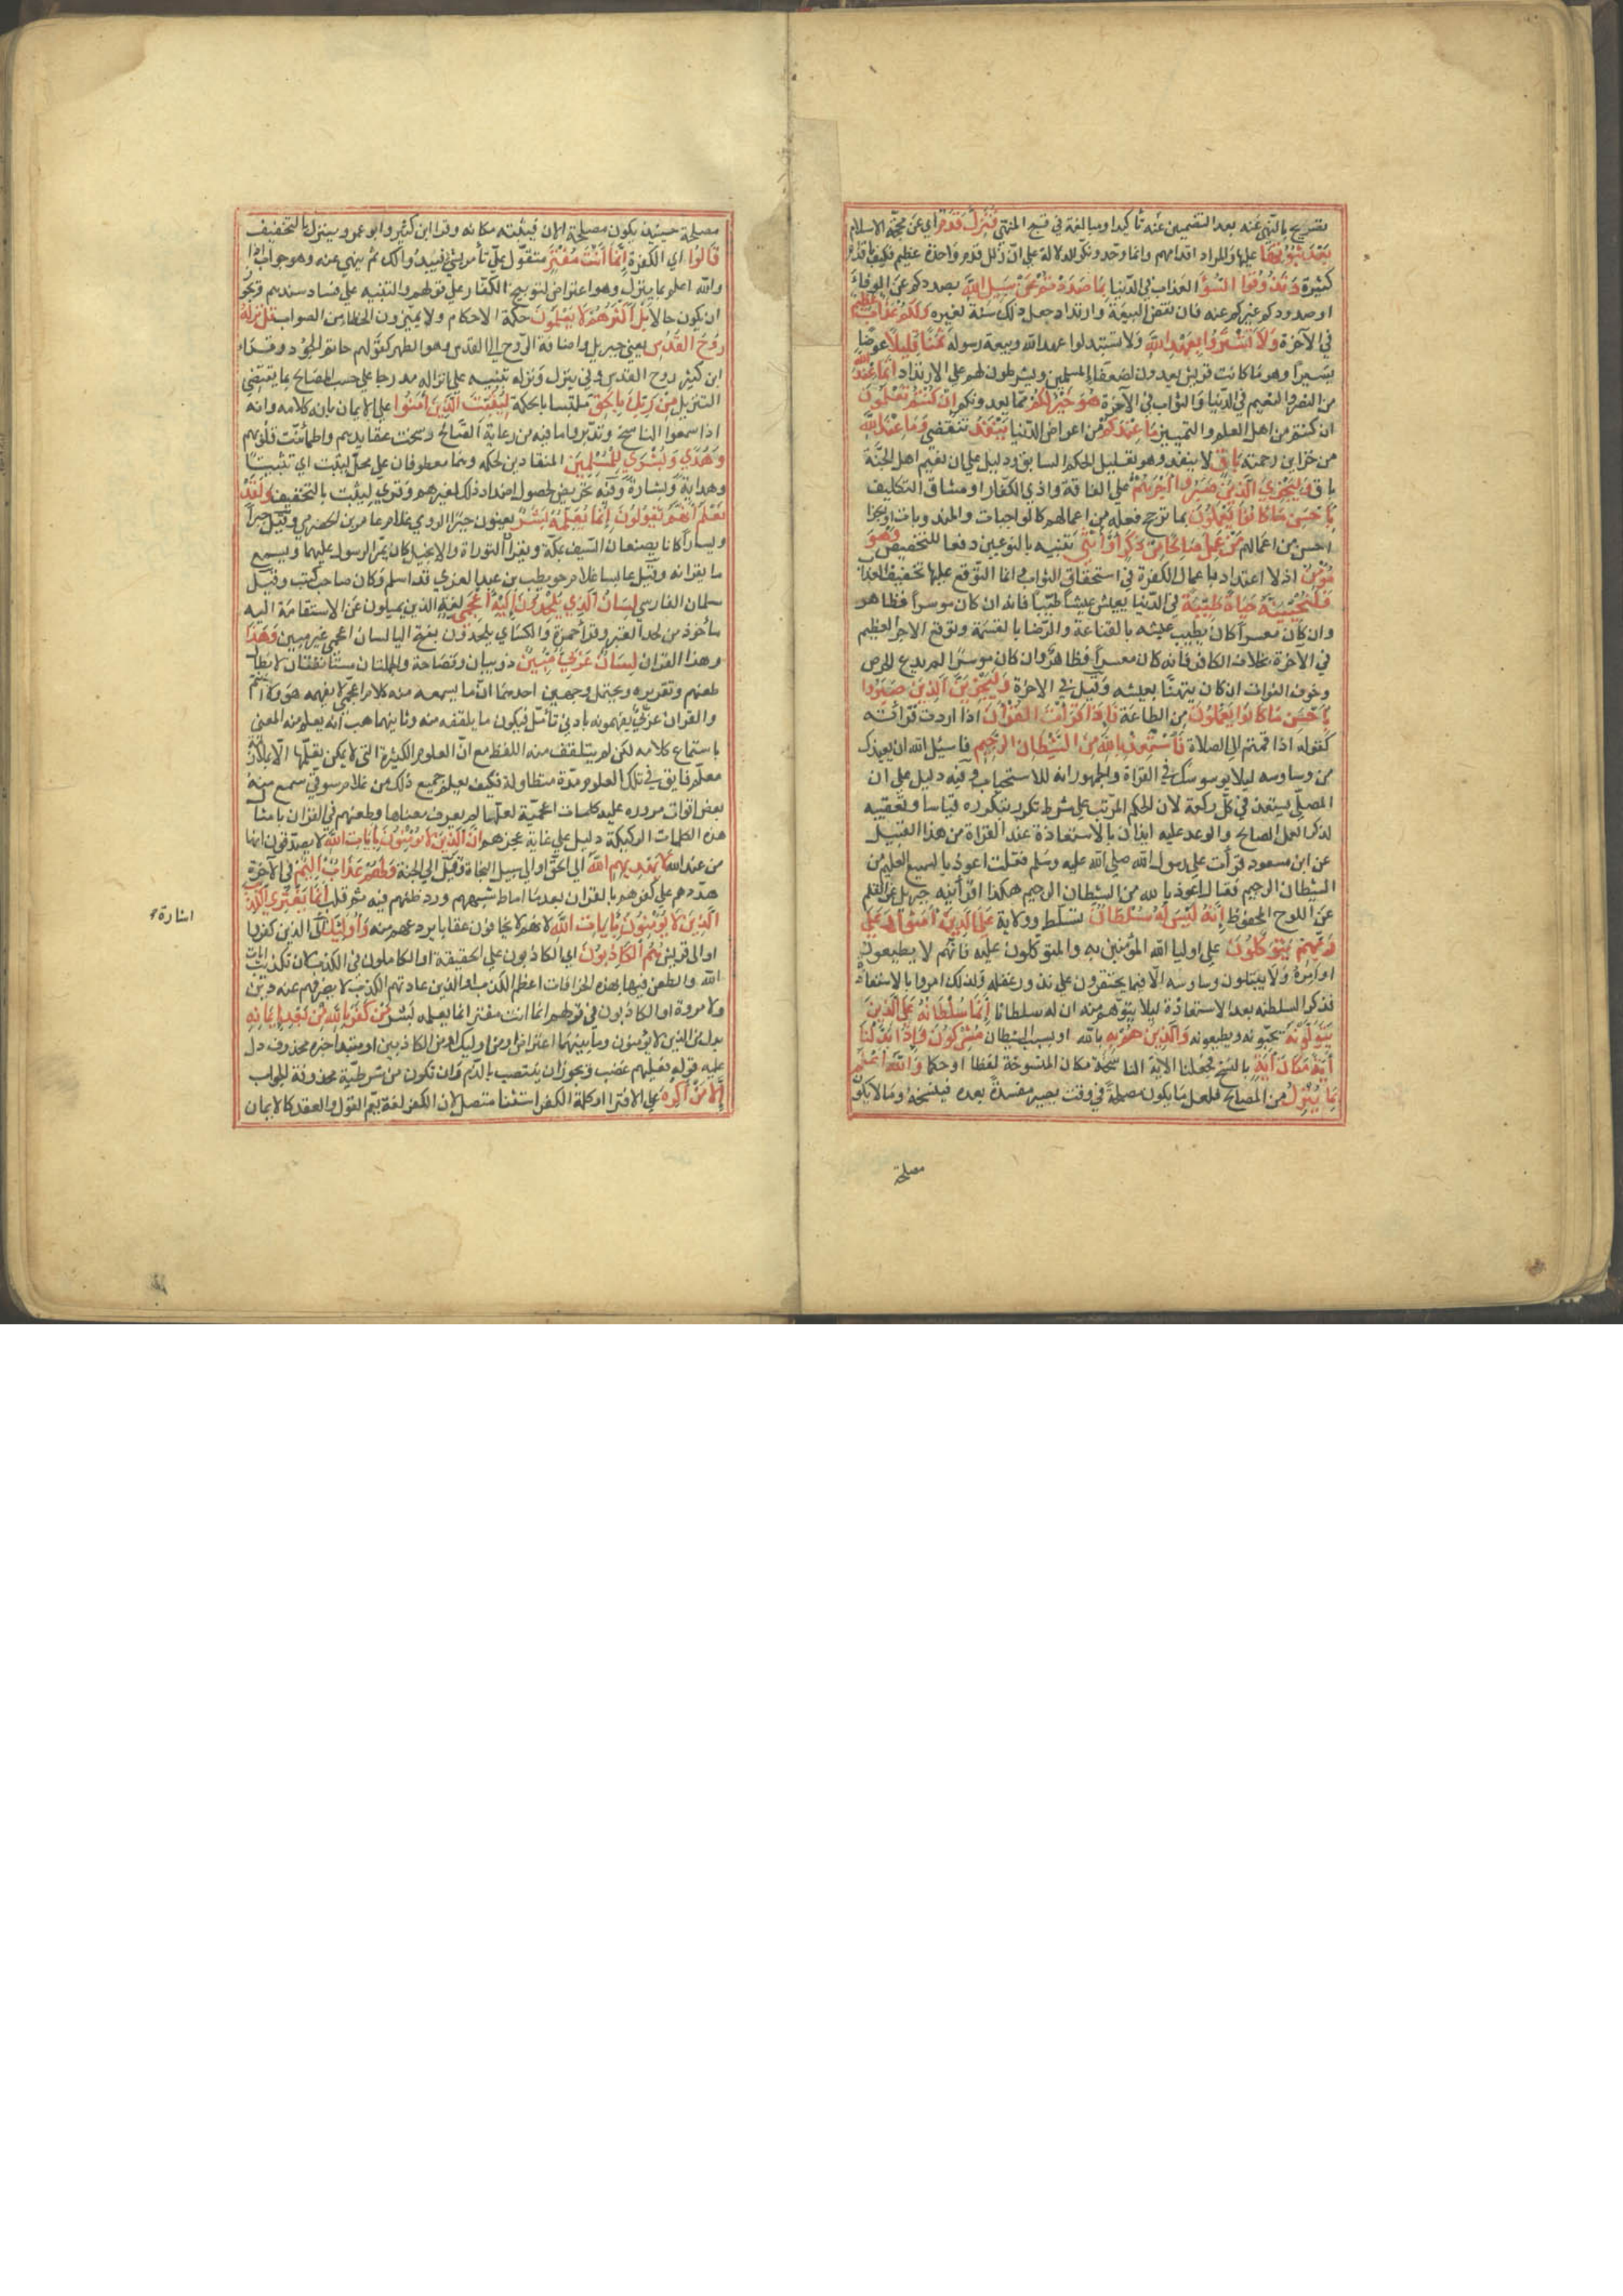 تصريح بالنهي عنه بعد التضمين عنه تأكيدا ومبالغة في قبح المنهي فَتَزِلَّ قَدَمٌ اي عن محجة الاسلام
بَعْدَ ثُبُوتِهَا عليها والمراد اقدامهم وانما وحد ونكر للدلالة على ان زلل قدم واحدة عظيم فكيف باقدام
كثيرة وَتَذُوقُوا السُّوءَ العذاب في الدنيا بِمَا صَدَدْتُمْ عَنْ سَبِيلِ اللَّهِ بصدودكم عن الوفاء
او صدودكم غيركم عنه فان نقض البيعة وارتد جعل ذلك سنة لغيره وَلَكُمْ عَذَابٌ عَظِيمٌ
في الآخرة وَلَا تَشْتَرُوا بِعَهْدِ اللَّهِ ولا تستبدلوا عهد الله وبيعة رسوله ثَمَنًا قَلِيلًا عوضا
يسيرا وهو ما كانت قريش يعدون لضعفاء المسلمين ويشرطون لهم على الارتداد إِنَّمَا عِنْدَ اللَّهِ
من النصر والتغنيم في الدنيا والثواب في الآخرة هُوَ خَيْرٌ لَكُمْ مما يعدونكم إِنْ كُنْتُمْ تَعْلَمُونَ
ان كنتم من اهل العلم والتمييز مَا عِنْدَكُمْ من اعراض الدنيا يَنْفَدُ تنقضي وَمَا عِنْدَ اللَّهِ
من خزاين رحمته بَاقٍ لا ينفد وهو تعليل الحكم السابق ودليل على ان نعيم اهل الجنة
باق وَلَيَجْزِيَنَّ الَّذِينَ صَبَرُوا أَجْرَهُمْ على الفاقة واذي الكفار او مشاق التكاليف
بِأَحْسَنِ مَا كَانُوا يَعْمَلُونَ بما ترجح فعله من اعمالهم كالواجبات والمندوبات او بجزا
احسن من اعمالهم مَنْ عَمِلَ صَالِحًا مِنْ ذَكَرٍ أَوْ أُنْثَى تنبيه بالنوعين دفعا للتخصيص وَهُوَ
مُؤْمِنٌ اذ لا اعتداد باعمال الكفرة في استحقاق الثواب وانما المتوقع عليها تخفيف العذاب
فَلَنُحْيِيَنَّهُ حَيَاةً طَيِّبَةً في الدنيا يعيش عيشا طيبا فانه ان كان موسرا فظاهر
وان كان معسرا كان يطيب عيشه بالقناعة والرضا بالقسمة وتوقع الاجر العظيم
في الآخرة بخلاف الكافر فانه ان كان معسرا فظاهر وان كان موسرا لم يدع الحرص
وخوف الفوات ان كان يتهنأ بعيشه وقيل في الاخرة وَلَنَجْزِيَنَّ الَّذِينَ صَبَرُوا
بِأَحْسَنِ مَا كَانُوا يَعْمَلُونَ من الطاعة فَإِذَا قَرَأْتَ الْقُرْآنَ اذا اردت قراءته
كقوله اذا قمتم الى الصلاة فَاسْتَعِذْ بِاللَّهِ مِنَ الشَّيْطَانِ الرَّجِيمِ فاسئل الله ان يعيذك
من وساوسه ليلا يوسوسك في القراة والجمهور انه للاستحباب وفيه دليل على ان
المصلي يستعيذ في كل ركعة لان الحكم المرتب على شرط تكرر بتكرره قياسا وتعقيبه
لذكر العمل الصالح والوعد عليه ايذان بالاستعاذة عند القراة من هذا القبيل
عن ابن مسعود قرأت على رسول الله صلى الله عليه وسلم فقلت اعوذ بالسميع العليم من
الشيطان الرجيم فقال قل اعوذ بالله من الشيطان الرجيم هكذا اقرأنيه جبريل عن القلم
عن اللوح المحفوظ إِنَّهُ لَيْسَ لَهُ سُلْطَانٌ تسلط وولاية عَلَى الَّذِينَ آمَنُوا وَعَلَى
رَبِّهِمْ يَتَوَكَّلُونَ على اوليا الله المؤمنين به والمتوكلون عليه فانهم لا يطيعون
اوامره ولا يقبلون وساوسه الا فيما يحتقرون على ندور وغفلة ولذلك امروا بالاستعاذة
فذكر السلطنة بعد الاستعاذة ليلا يتوهم منه ان له سلطانا إِنَّمَا سُلْطَانُهُ عَلَى الَّذِينَ
يَتَوَلَّوْنَهُ يحبونه ويطيعونه وَالَّذِينَ هُمْ بِهِ بالله او بسبب الشيطان مُشْرِكُونَ وَإِذَا بَدَّلْنَا
آيَةً مَكَانَ آيَةٍ بالنسخ فجعلنا الاية الناسخة مكان المنسوخة لفظا او حكما وَاللَّهُ أَعْلَمُ
بِمَا يُنَزِّلُ من المصالح فلعل ما يكون مصلحة في وقت يصير مفسدة بعده فينسخه وما لا يكون
مصلحة
مصلحة حينئذ يكون مصلحة الان فيثبته مكانه وقرا ابن كثير وابو عمرو ينزل بالتخفيف
قَالُوا اي الكفرة إِنَّمَا أَنْتَ مُفْتَرٍ متقول على الله تأمر بشئ ثم يبدو لك ثم تنهي عنه وهو جواب اذا
والله اعلم بما ينزل وهو اعتراض لتوبيخ الكفار على قولهم والتنبيه على فساد سندهم ويجوز
ان يكون حالا بَلْ أَكْثَرُهُمْ لَا يَعْلَمُونَ حكمة الاحكام ولا يميزون الخطا من الصواب قُلْ نَزَّلَهُ
رُوحُ الْقُدُسِ يعني جبريل واضافة الروح الى القدس وهو الطهر كقولهم حاتم الجود وقرا
ابن كثير روح القدس وفي ينزل ونزله تنبيه على انزاله مدرجا على حسب المصالح بما يقتضي
التنزيل مِنْ رَبِّكَ بِالْحَقِّ ملتبسا بالحكمة لِيُثَبِّتَ الَّذِينَ آمَنُوا على الايمان بانه كلامه وانه
اذا سمعوا الناسخ وتدبروا ما فيه من رعاية الصالح رسخت عقايدهم واطمأنت قلوبهم
وَهُدًى وَبُشْرَى لِلْمُسْلِمِينَ المنقادين لحكمه وهما معطوفان على محل ليثبت اي تثبيتا
وهداية وبشارة وفيه تعريض لحصول اضداد ذلك لغيرهم وقري ليثبت بالتخفيف وَلَقَدْ
نَعْلَمُ أَنَّهُمْ يَقُولُونَ إِنَّمَا يُعَلِّمُهُ بَشَرٌ يعنون جبرا الرومي غلام عامر بن الحضرمي وقيل جبرا
ويسارا كانا يصنعان السيف بمكة ويقرآن التوراة والانجيل وكان يمر الرسول عليهما ويسمع
ما يقرانه وقيل عايسا غلام حويطب بن عبد العزى قد اسلم وكان صاحب كتب وقيل
سلمان الفارسي لِسَانُ الَّذِي يُلْحِدُونَ إِلَيْهِ أَعْجَمِيٌّ لغة الذين يميلون عن الاستقامة اليه
مأخوذ من لحد القبر وقرأ حمزة والكسائي يلحدون بفتح اليا لسان اعجمي غير مبين وَهَذَا
وهذا القران لِسَانٌ عَرَبِيٌّ مُبِينٌ ذو بيان وفصاحة والجملتان مستأنفتان لابطال
طعنهم وتقريره ويحتمل وجهين احدهما ان ما يسمعه منه كلام اعجمي لا يفهمه هو ولا انتم
والقران عربي يفهمونه بادني تأمل فيكون ما يلقفه منه وثانيهما هب انه يعلم منه المعنى
باستماع كلامه لكن لم يتلقف منه اللفظ مع ان العلوم الكثيرة التي لا يمكن تعلمها الا بملازمة
معلم فايق في تلك العلوم مدة متطاولة فكيف يعلم جميع ذلك من غلام سوقي سمع منه
بعض اوقات مروره عليه كلمات اعجمية لعلها لم يعرف معناها وطعنهم في القران بامثال
هذه الكلمات الركيكة دليل على غاية عجزهم إِنَّ الَّذِينَ لَا يُؤْمِنُونَ بِآيَاتِ اللَّهِ لا يصدقون انها
من عند الله لَا يَهْدِيهِمُ اللَّهُ الى الحق او الى سبيل النجاة وقيل الى الجنة وَلَهُمْ عَذَابٌ أَلِيمٌ في الآخرة
هددهم على كفرهم بالقران بعد ما اماط شبههم ورد طعنهم فيه ثم قلب إِنَّمَا يَفْتَرِي الْكَذِبَ
الَّذِينَ لَا يُؤْمِنُونَ بِآيَاتِ اللَّهِ لانهم لا يخافون عقابا يردعهم عنه وَأُولَئِكَ الى الذين كفروا
او الى قريش هُمُ الْكَاذِبُونَ اي الكاذبون على الحقيقة او الكاملون في الكذب لان تكذيب ايات
الله والطعن فيها بهذه الخرافات اعظم الكذب او الذين عادتهم الكذب لا يصرفهم عنه دين
ولا مروة او الكاذبون في قولهم انما انت مفتر انما يعلمه بشر مَنْ كَفَرَ بِاللَّهِ مِنْ بَعْدِ إِيمَانِهِ
بدل من الذين لا يؤمنون وما بينهما اعتراض او من اوليك او من الكاذبين او مبتدا خبره محذوف دل
عليه قوله فعليهم غضب ويجوز ان ينتصب بالذم وان تكون من شرطية محذوفة الجواب
إِلَّا مَنْ أُكْرِهَ على الافترا او كلمة الكفر استثنا متصل لان الكفر لغة يعم القول والعقد كالايمان
اشارة